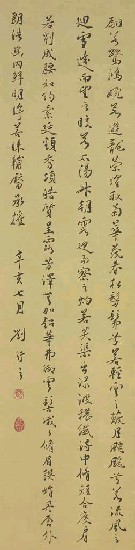 翩若驚鴻婉若遊龍榮曜秋菊華茂春松髣髴兮若輕雲之蔽月飄颻兮若流風之
迴雪遠而望之皎若太陽升朝霞迫而察之灼若芙蕖出淥波襛纖得中脩短合度肩
若削成腰如約素延頸秀項皓質呈露芳澤無加鉛華弗御雲髻峨峨脩眉聯娟丹脣外
朗皓齒內鮮明眸善睞靨輔承權
辛亥七月 劉行之